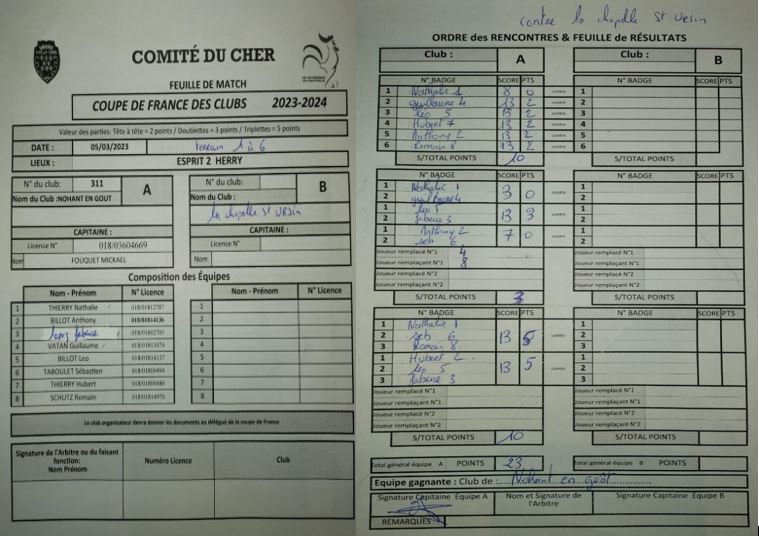 COMITÉ DU CHER
FEUILLE DE MATCH
COUPE DE FRANCE DES CLUBS 2023-2024
Valeur des parties: Tête à tête = 2 points / Doublettes = 3 points / Triplettes = 5 points
DATE : 05/03/2023 terrain 1 à 6
LIEUX: ESPRIT 2 HERRY
N° du club: 311 A
Nom du Club :NOHANT EN GOUT
N° du club: B
Nom du Club :
la chapelle St Ursin
CAPITAINE :
Licence N° 018/03604669
Nom FOUQUET MICKAEL
CAPITAINE :
Licence N°
Nom
Composition des Équipes
Nom - Prénom N° Licence
1 THIERRY Nathalie
2 BILLOT Anthony
3 Lopez fabrice
4 VATAN Guillaume
5 BILLOT Leo
6 TABOULET Sébastien
7 THIERRY Hubert
8 SCHUTZ Romain
Nom - Prénom N° Licence
1
2
3
4
5
6
7
8
Le club organisateur devra donner les documents au délégué de la coupe de France
Signature de l'Arbitre ou du faisant fonction:
Nom Prénom
Numéro Licence
Club
contre la chapelle St Ursin
ORDRE des RENCONTRES & FEUILLE de RÉSULTATS
Club : A
N° BADGE SCORE PTS
1 Nathalie 1 8 0 contre
2 guillaume 4 13 2 contre
3 leo 5 13 2 contre
4 Hubert 7 13 2 contre
5 Anthony 2 13 2 contre
6 Romain 8 13 2 contre
S/TOTAL POINTS 10
1 Nathalie 1
2 guillaume 4 3 0 contre
1 leo 5
2 fabrice 3 13 3 contre
1 Anthony 2
2 seb 6 7 0 contre
Joueur remplacé N°1 4
Joueur remplaçant N°1 8
Joueur remplacé N°2
Joueur remplaçant N°2
S/TOTAL POINTS 3
N° BADGE SCORE PTS
1 Nathalie 1
2 seb 6 13 5 contre
3 Romain 8
1 Hubert
2 leo 5 13 5 contre
3 fabrice 3
Joueur remplacé N°1
Joueur remplaçant N°1
Joueur remplacé N°2
Joueur remplaçant N°2
S/TOTAL POINTS 10
Total général équipe A POINTS 23
Club : B
N° BADGE SCORE PTS
1
2
3
4
5
6
S/TOTAL POINTS
1
2
1
2
1
2
Joueur remplacé N°1
Joueur remplaçant N°1
Joueur remplacé N°2
Joueur remplaçant N°2
S/TOTAL POINTS
N° BADGE SCORE PTS
1
2
3
1
2
3
Joueur remplacé N°1
Joueur remplaçant N°1
Joueur remplacé N°2
Joueur remplaçant N°2
S/TOTAL POINTS
Total général équipe B POINTS
Equipe gagnante : Club de :..... Nohant en goût
Signature Capitaine Équipe A
Nom et Signature de l'Arbitre
Signature Capitaine Équipe B
REMARQUES